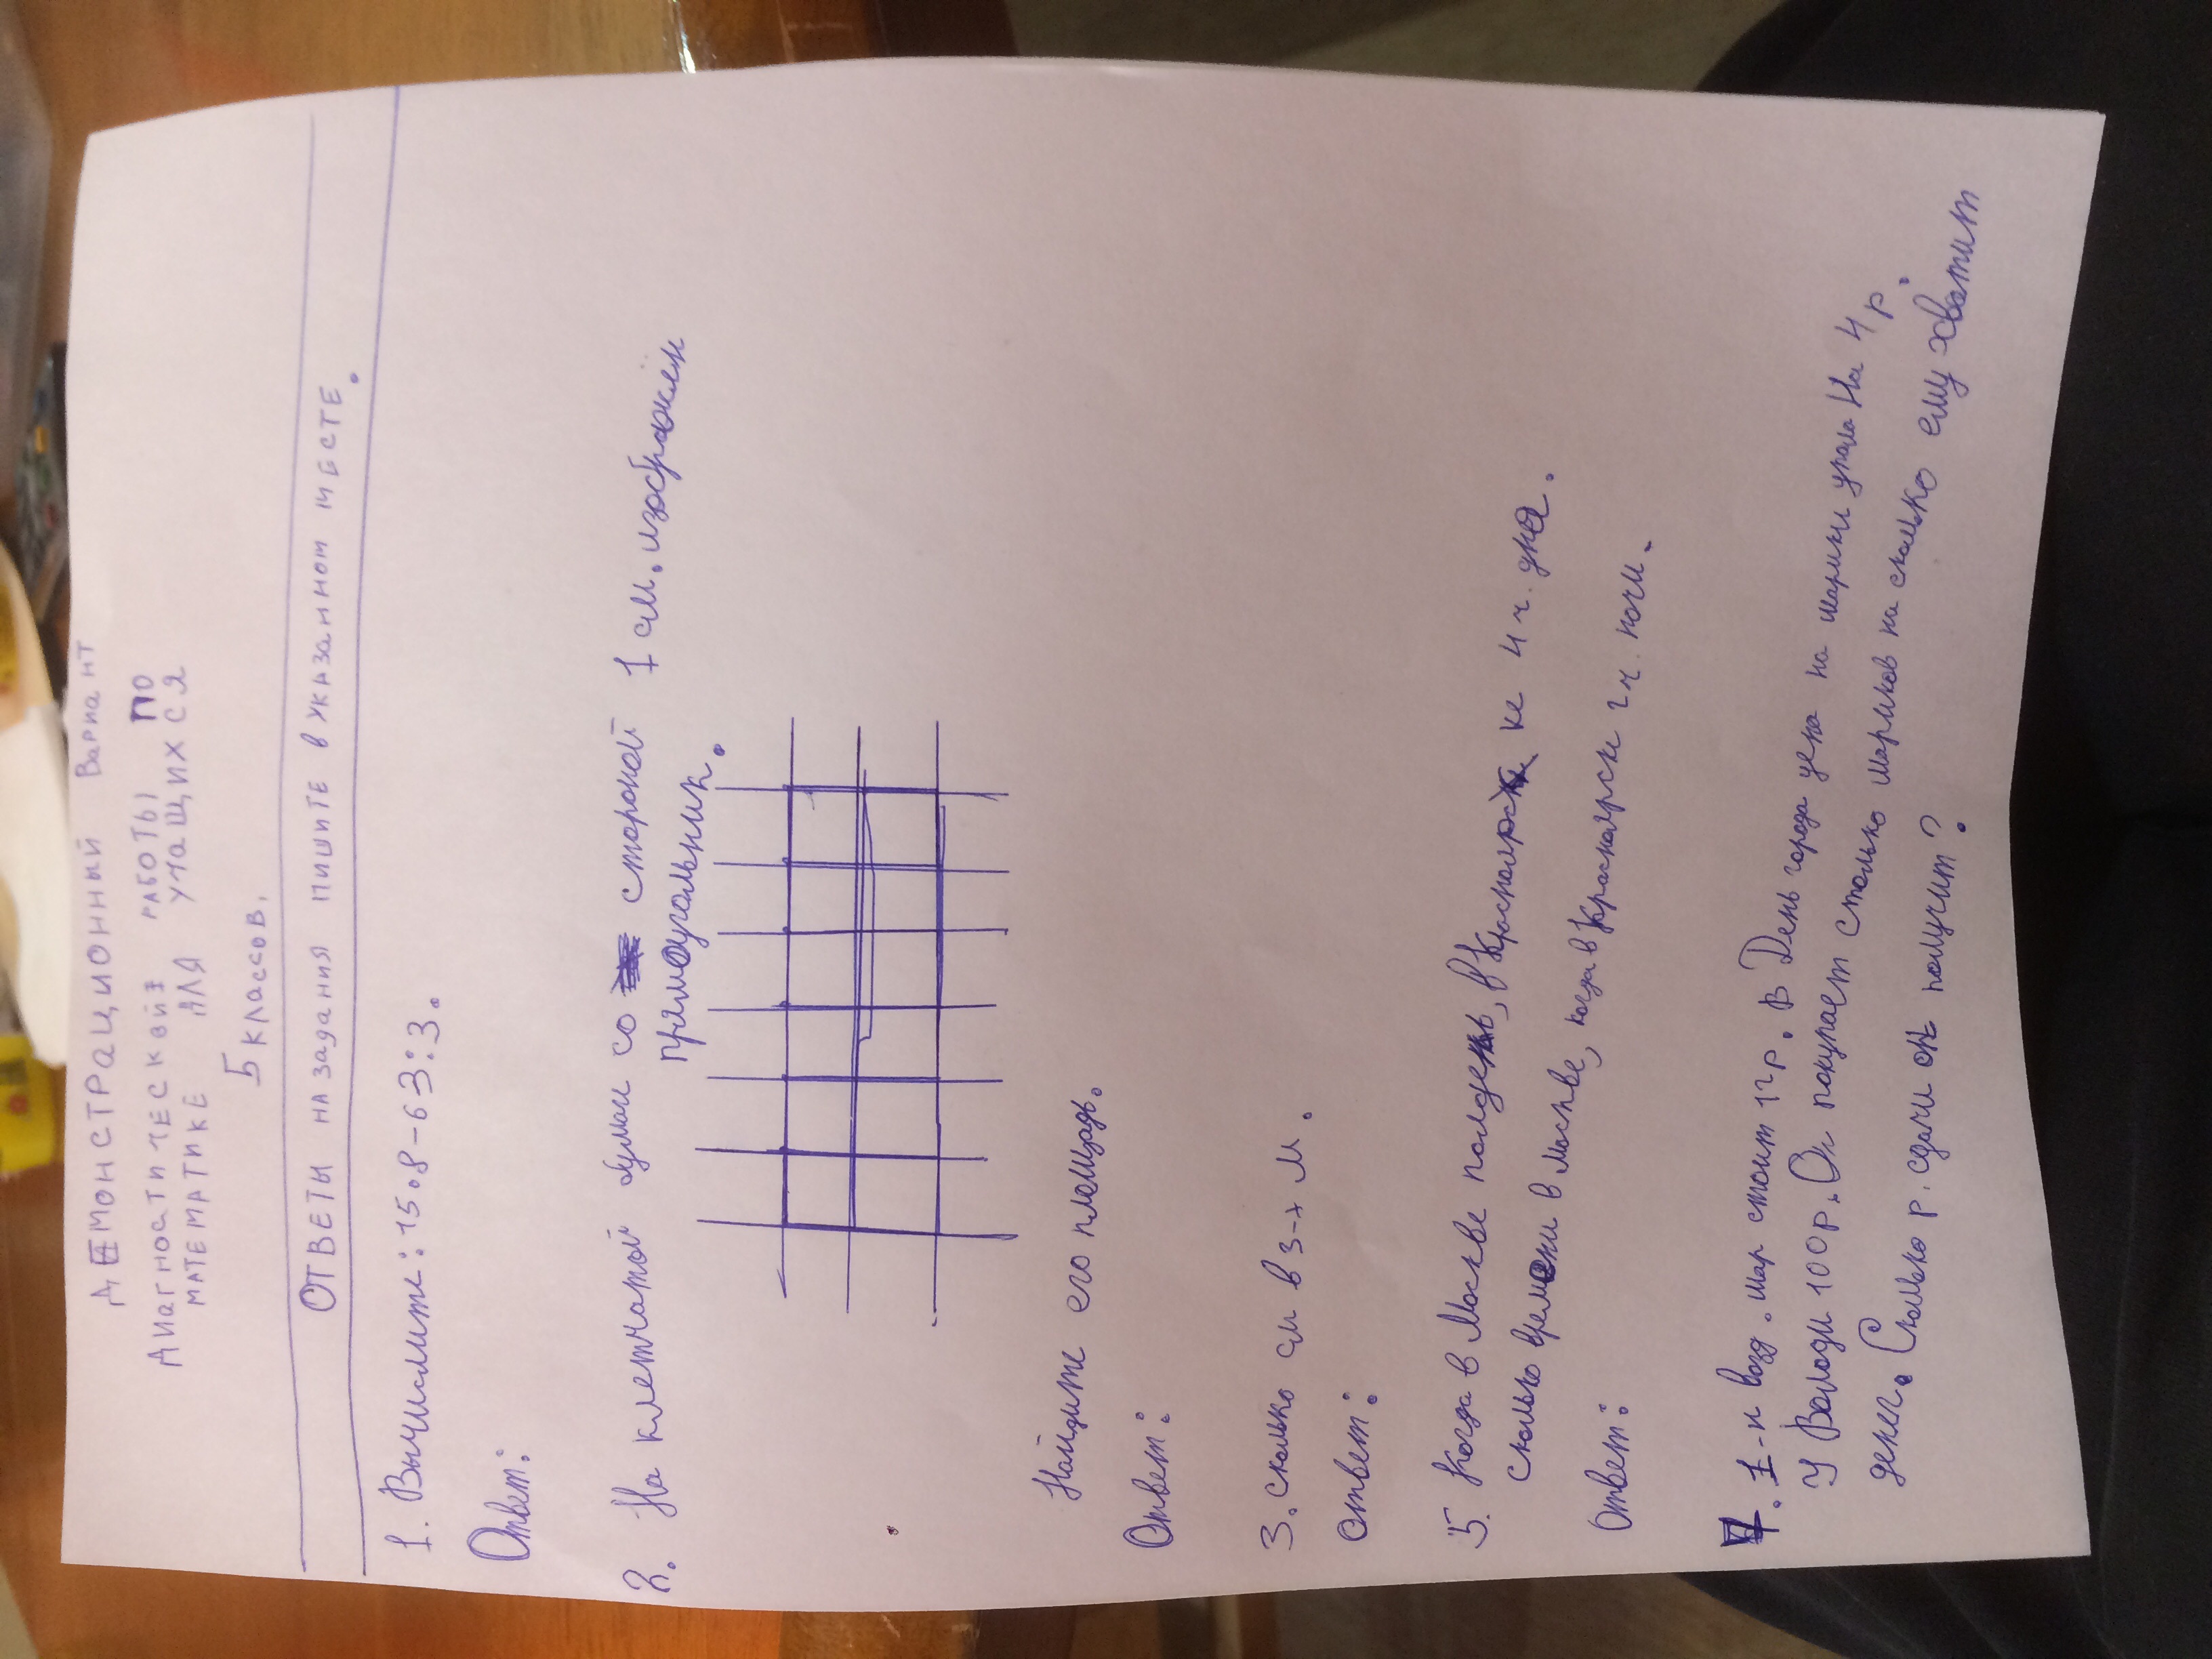 ДЕМОНСТРАЦИОННЫЙ Вариант
ДИАГНОСТИЧЕСКОЙ РАБОТЫ ПО
МАТЕМАТИКЕ ДЛЯ УЧАЩИХСЯ
5 классов.
ОТВЕТЫ НА задания пишите в указанном месте.
1. Вычислите: 15.8-63:3.
Ответ:
2. На клетчатой бумаги со стороной 1 см. изображён
прямоугольник.
Найдите его площадь.
Ответ:
3. сколько см в 3-х м.
ответ:
5. Когда в Москве полдень, в Красноярске 4 ч. дня.
сколько времени в Москве, когда в Красноярске 2 ч. ночи.
ответ:
7. 1-н возд. шар стоит 12р. В День города цена на шарики упала на 4 р.
У Володи 100р. Он покупает столько шариков на сколько ему хватит
денег. Сколько р. сдачи он получит?